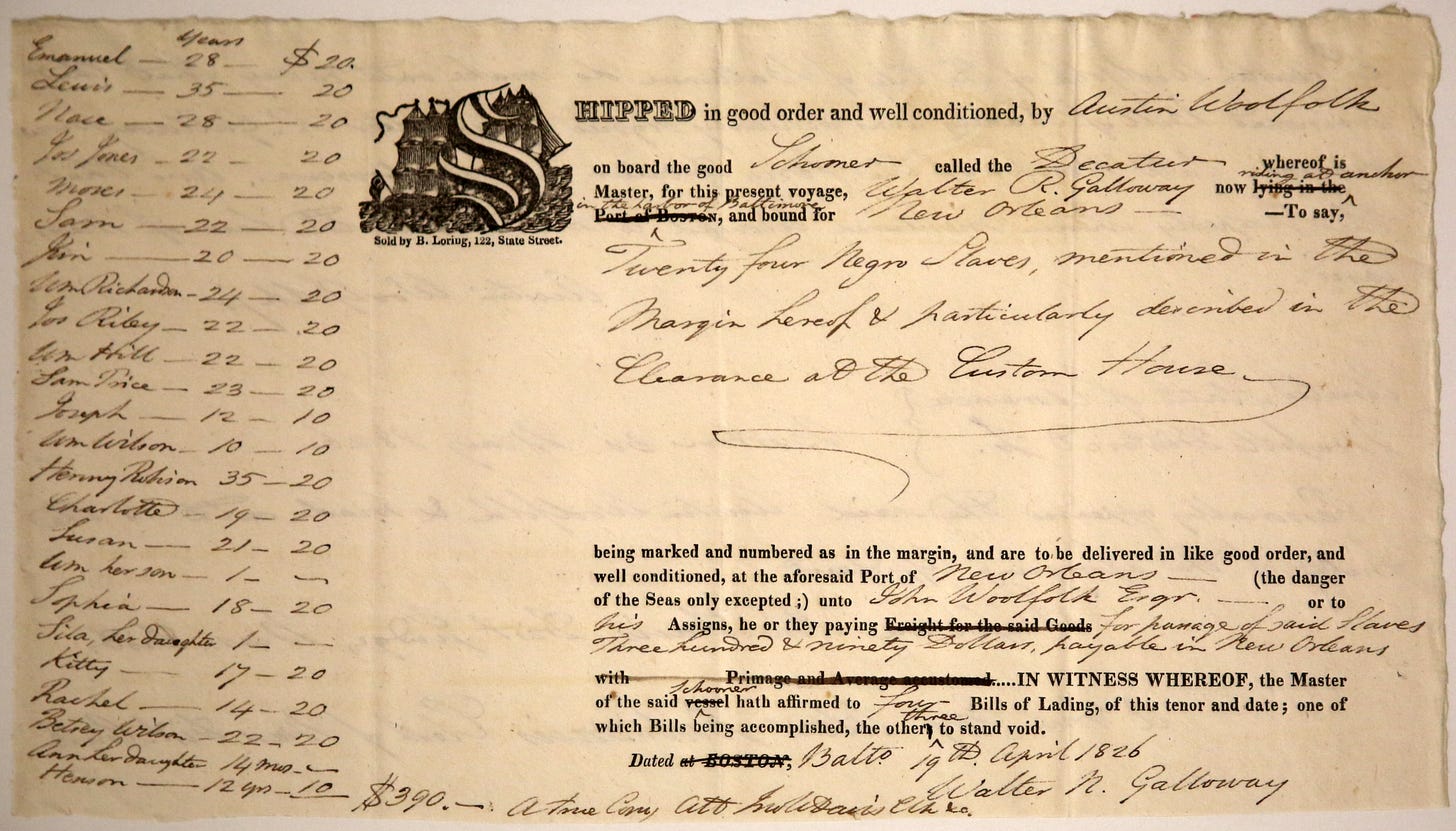 years
Emanuel — 28 — $20.
Lewis — 35 — 20
Nace — 28 — 20
Jos Jones — 22 — 20
Moses — 24 — 20
Sam — 22 — 20
20 — 20
Wm Richardson — 24 — 20
Jos Riley — 22 — 20
Wm Hill — 22 — 20
Sam Price — 23 — 20
Joseph — 12 — 10
Wm Wilson — 10 — 10
Henny Robison 35 — 20
Charlotte — 19 — 20
Susan — 21 — 20
Wm her son — 1 — —
Sophia — 18 — 20
her daughter 1 — —
Kitty — 17 — 20
Rachel — 14 — 20
Betsey Wilson — 22 — 20
Ann her daughter 14 mos. —
Henson — 12 yrs — 10
$390. —
SHIPPED in good order and well conditioned, by Austin Woolfolk
on board the good Schooner called the Decatur whereof is
riding at anchor
Master, for this present voyage, Walter R. Galloway now lying in the
in the harbor of Baltimore
Port of BOSTON, and bound for New Orleans — —To say,
Sold by B. Loring, 122, State Street.
Twenty four Negro Slaves, mentioned in the
Margin hereof & particularly described in the
Clearance at the Custom House
being marked and numbered as in the margin, and are to be delivered in like good order, and
well conditioned, at the aforesaid Port of New Orleans — (the danger
of the Seas only excepted ;) unto John Woolfolk Esqr. — or to
his Assigns, he or they paying Freight for the said Goods for passage of said Slaves
Three hundred & ninety Dollars, payable in New Orleans
with Primage and Average accustomed.....IN WITNESS WHEREOF, the Master
schooner
of the said vessel hath affirmed to four Bills of Lading, of this tenor and date; one of
three
which Bills being accomplished, the other to stand void.
Dated at BOSTON, Balto 19th. April 1826
Walter N. Galloway
A true Copy Att Davis Clk